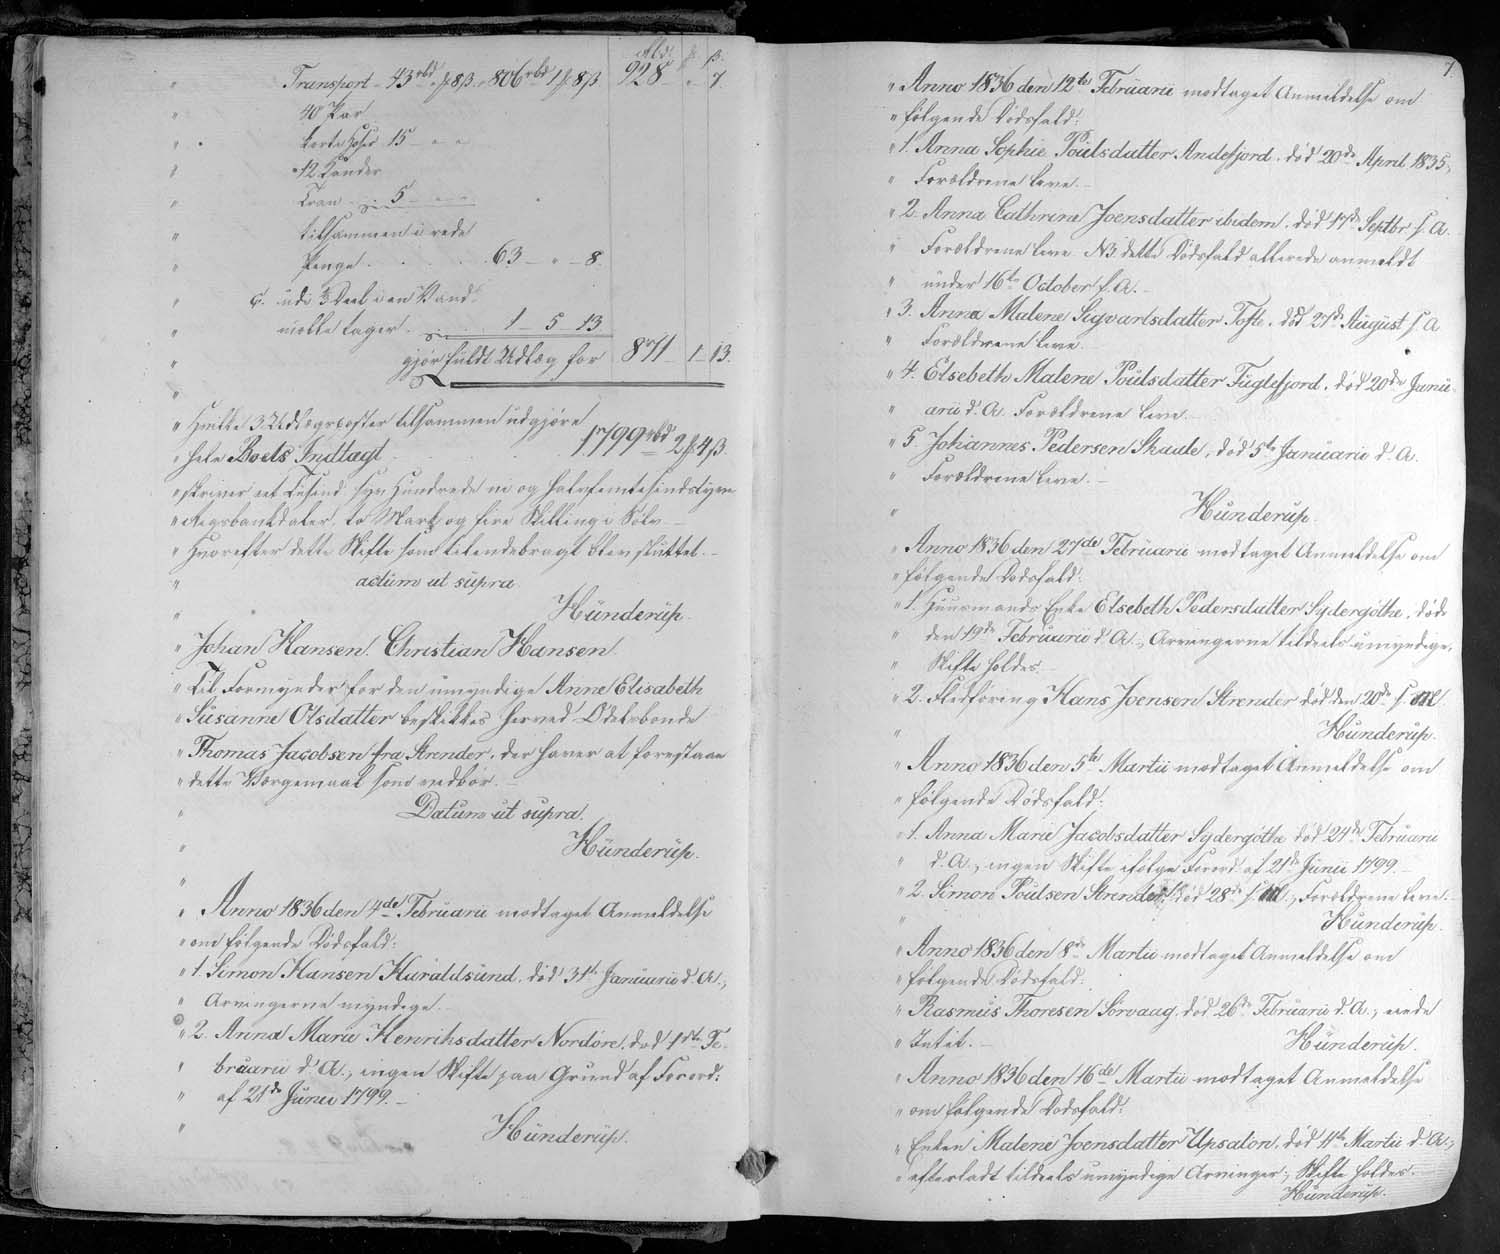 Rbd. ß.
Transport 43 rbd „ 8ß. 806 rbd 1 8ß 928 „ 7.
40 Par
korte Hoser 15 „ „
12 Kander
Tran 5 „ „
tilsammen i rede
Penge . . . 63 „ 8.
udi Deel i en Vand-
mølle tager . . 1 5 13
gjør fuldt Udlæg for 871 1 13.
Hvilke 3 Udlægsposter tilsammen udgjøre
hele Boets Indtægt . . . 1799 rbd 2 4ß.
skriver eet Tusind syv Hundrede ni og halvfemtesindstyve
Rigsbankdaler, to Mark og fire Skilling i Sølv.
Hvorefter dette Skifte som tilendebragt blev sluttet.
actum ut supra
Hunderup.
Johan Hansen. Christian Hansen.
Til Formynder for den umyndige Anne Elisabeth
Susanne Olsdatter beskikkes herved Odelsbonde
Thomas Jacobsen fra Strender, der haver at forestaae
dette Værgemaal som vedbør.
Datum ut supra.
Hunderup.
Anno 1836 den 4de Februarii modtaget Anmeldelse
om følgende Dødsfald:
1. Simon Hansen Haraldsund, død 31te Januarii d. A.,
Arvingerne myndige.
2. Anna Marie Henrichsdatter Nordöre, død 1ste Fe-
bruarii d. A., ingen Skifte paa Grund af Forord:
af 21de Junii 1799.
Hunderup.
7.
Anno 1836 den 12te Februarii modtaget Anmeldelse om
følgende Dødsfald:
1. Anna Sophie Poulsdatter Andefjord, død 20de April 1835,
Forældrene leve.
2. Anna Cathrine Joensdatter ibidem, død 17de Septbr s. A.
Forældrene leve NB. dette Dødsfald allerede anmeldt
under 16te October s. A.
3. Anna Malene Sigvartsdatter Tofte, død 27de August s. A
Forældrene leve.
4. Elsebeth Malene Poulsdatter Fuglefjord, død 20de Janu-
arii d. A. Forældrene leve.
5. Johannes Pedersen Skaale, død 5te Januarii d. A.
Forældrene leve.
Hunderup.
Anno 1836 den 27de Februarii modtaget Anmeldelse om
følgende Dødsfald:
1. Huusmands Enke Elsebeth Pedersdatter Sydergöthe, døde
den 19de Februarii d. A., Arvingerne tildeels umyndige,
Skifte holdes.
2. Fledføring Hans Joensen Strender død den 20de s. M.
Hunderup.
Anno 1836 den 5te Martii modtaget Anmeldelse om
følgende Dødsfald:
1. Anna Marie Jacobsdatter Sydergöthe død 24de Februarii
d. A., ingen Skifte ifølge Forord: af 21de Junii 1799.
2. Simon Poulsen Strender, død 28de s. M., Forældrene leve.
Hunderup.
Anno 1836 den 8de Martii modtaget Anmeldelse om
følgende Dødsfald:
Rasmus Thoresen Sörvaag, død 26de Februarii d. A., eiede
Intet.
Hunderup.
Anno 1836 den 16de Martii modtaget Anmeldelse
om følgende Dødsfald:
Enken Malene Joensdatter Upsalon, død 11te Martii d. A.,
efterladt tildeels umyndige Arvinger, Skifte holdes.
Hunderup.